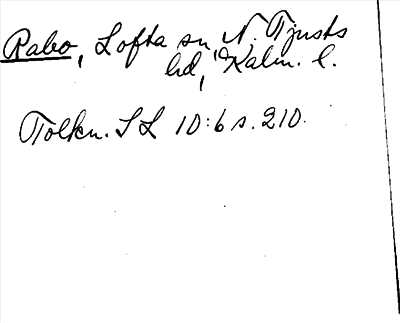 Rabo, Lofta sn, N. Tjusts
hd, Kalm. l.
Tolkn. SL 10:6 s. 210.